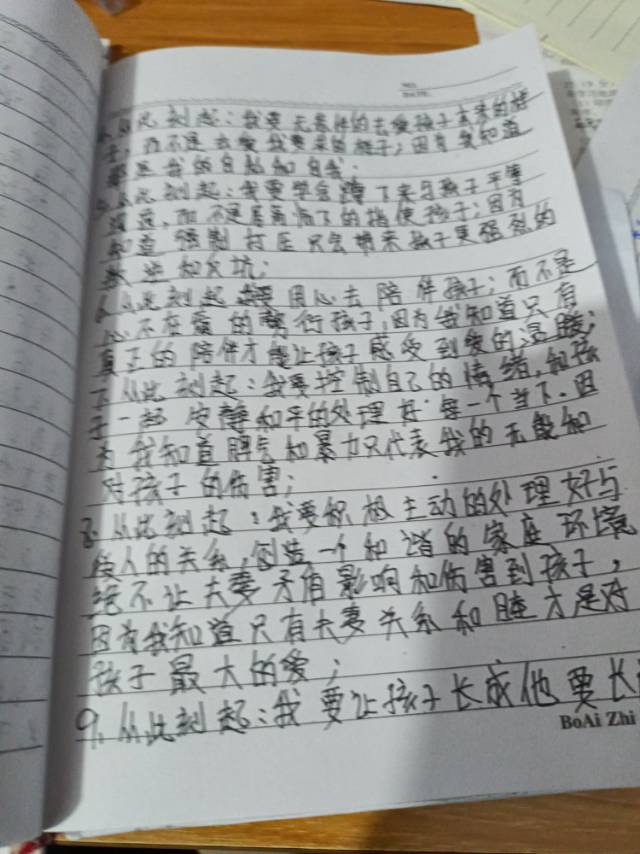 NO.
DATE.
4. 从此刻起:我要无条件的去爱孩子本来的样
子,而不是去爱我要求的样子;因为我知道
那是我的自私和自我;
5. 从此刻起:我要学会蹲下来与孩子平等
沟通,而不是居高临下的指使孩子;因为
知道强制打压只会带来孩子更强烈的
叛逆和反抗;
6. 从此刻起:我要用心去陪伴孩子;而不是
心不在焉的敷衍孩子,因为我知道只有
真正的陪伴才能让孩子感受到爱的温暖;
7. 从此刻起:我要控制自己的情绪,和孩
子一起安静和平的处理好每一个当下.因
为我知道脾气和暴力只代表我的无能和
对孩子的伤害;
8. 从此刻起:我要积极主动的处理好与
爱人的关系,创造一个和谐的家庭环境
绝不让夫妻矛盾影响和伤害到孩子,
因为我知道只有夫妻关系和睦才是对
孩子最大的爱;
9. 从此刻起:我要让孩子长成他要长
BoAi Zhi